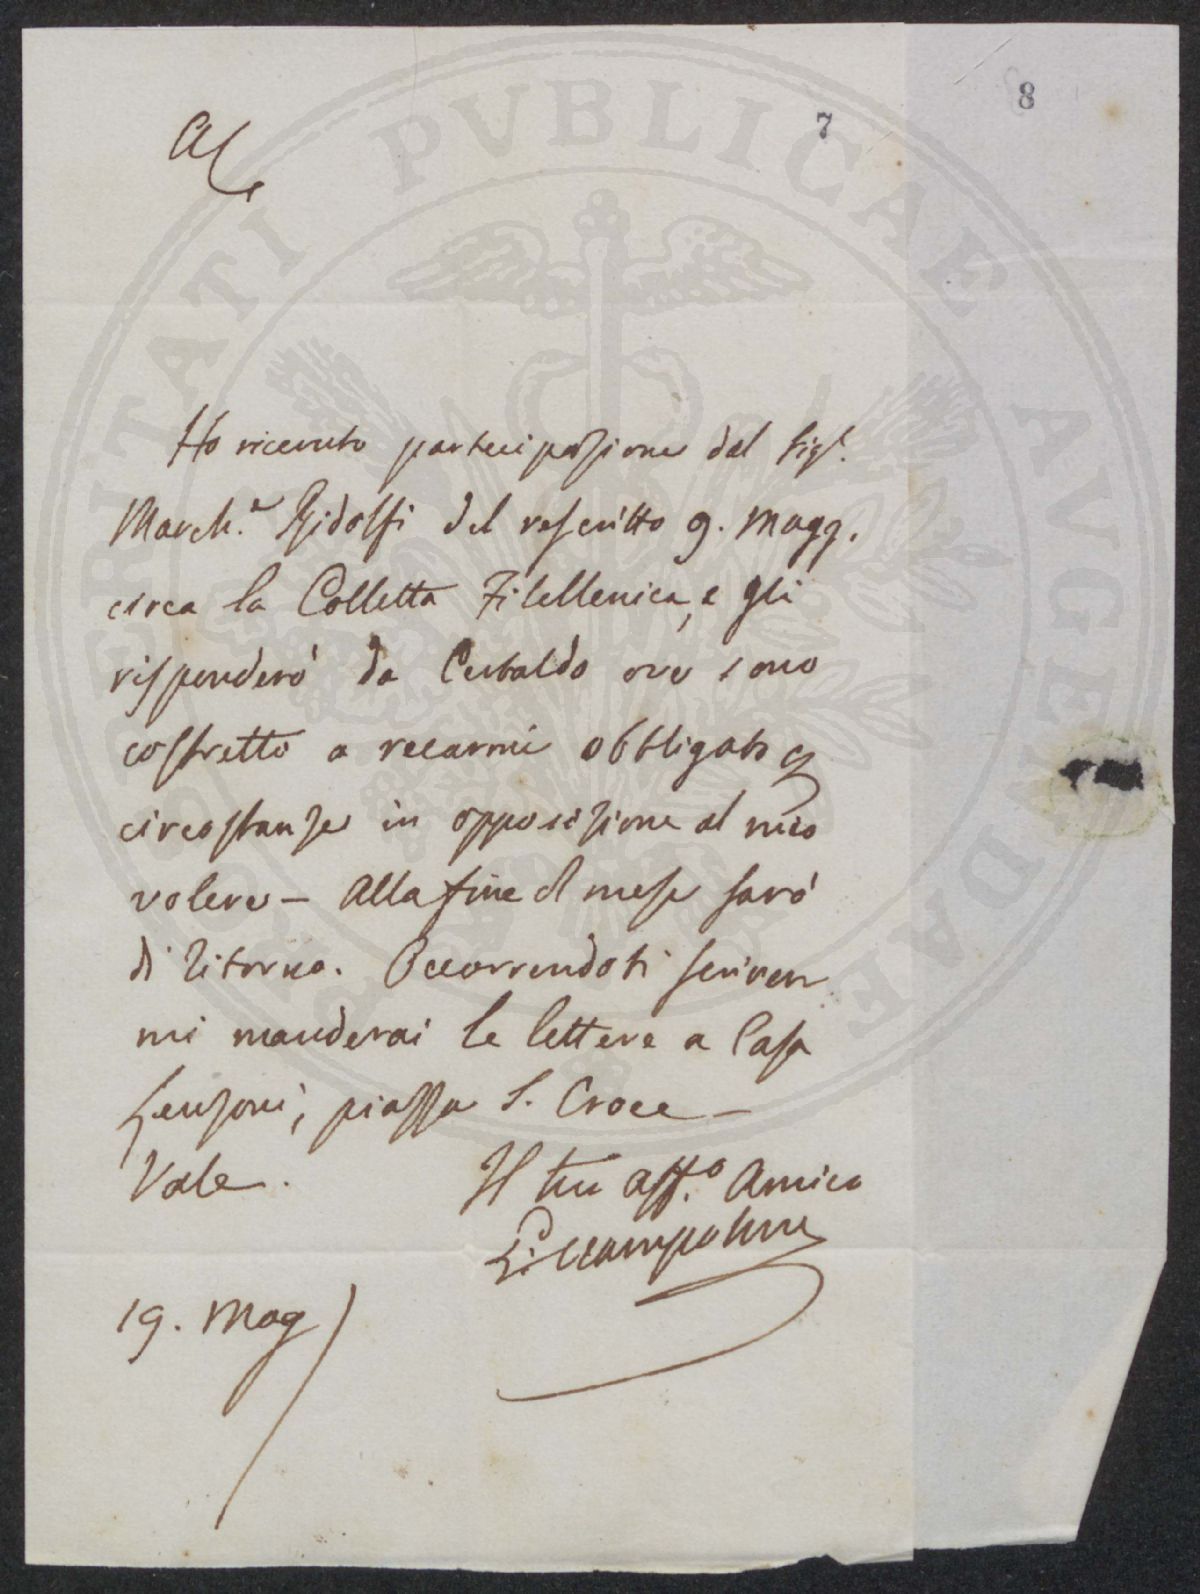 7
8
AC
Ho ricevuto partecipazione dal Sigr.
March.e Ridolfi del rescritto 9. Magg.
circa la Colletta Filellenica, e gli
risponderò da Certaldo ove sono
costretto a recarmi obbligato
circostanze in opposizione al mio
volere – Alla fine del mese sarò
di ritorno. Occorrendoti scriver
mi manderai le lettere a Casa
Lenzoni, piazza S. Croce –
Vale. Il tuo aff.o Amico
19. Mag
PROSPERITATI PVBLICAE AVGENDAE